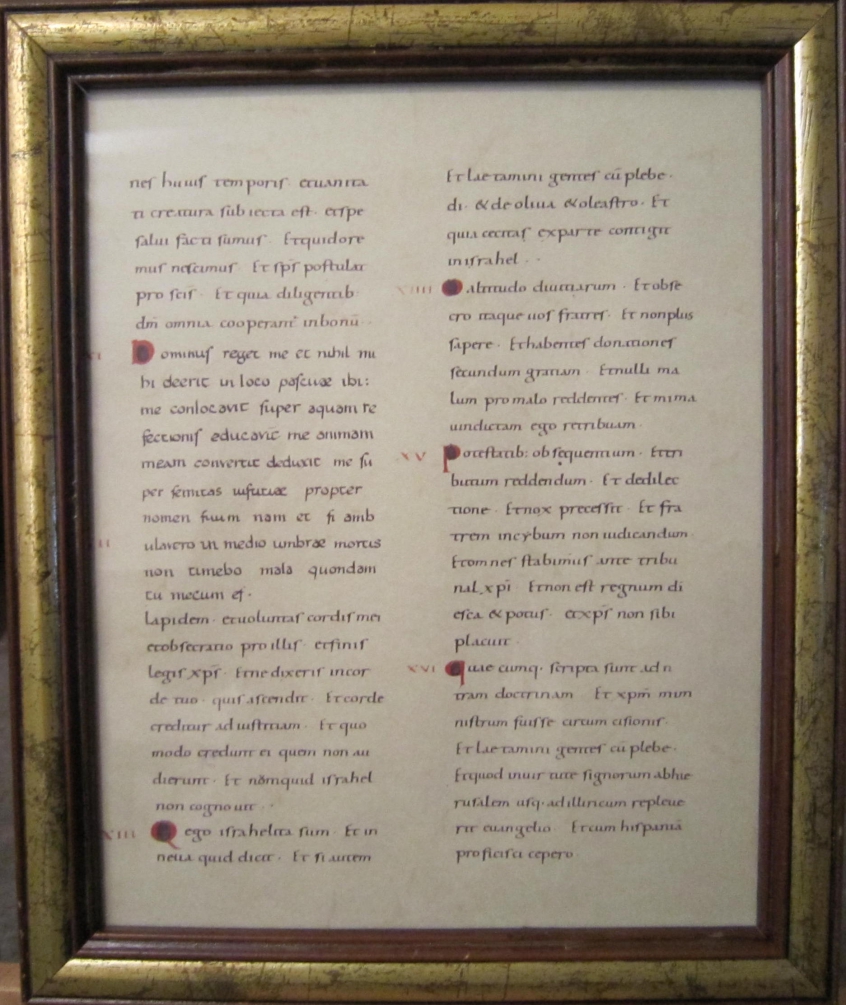 nes huius temporis · et uanita
ti creatura subiecta est · et spe
salui facti sumus · Et quid ore
mus nescimus · Et sps postular
pro scis · Et quia diligentib
dm omnia cooperant inbonu
VI Dominus reget me et nihil mi
hi deerit in loco pascuae ibi:
me conlocavit super aquam re
fectionis educavit me animam
meam convertit deduxit me su
per semitas iustitiae propter
nomen suum nam et si amb
II ulavero in medio umbrae mortis
non timebo mala quondam
tu mecum es ·
lapidem · et uoluntas cordis mei
et obsecratio pro illis · et finis
legis xps · Et ne dixeris in cor
de tuo · quis ascendit · Et corde
creditur ad iustitiam · Et quo
modo credunt ei quem non au
dierunt · Et nomquid israhel
non cognouit · ·
XIII Q ego israhelita sum · Et in
quid dicit · Et si autem
Et laetamini gentes cū plebe ·
di · & de oliua & oleastro · Et
quia cecitas ex parte contigit
in israhel · ·
XIIII O altitudo diuitiarum · Et obse
cro itaque uos fratres · Et non plus
sapere · Et habentes donationes
secundum gratian · Et nulli ma
lum pro malo reddentes · Et mi ma
uindictam ego retribuam ·
XV Potestatib: obsequentium · Et tri
butum reddendum · Et dedilec
tione · Et nox precessit · Et fra
trem incybum non iudicandum ·
Et omnes stabimus ante tribu
nal xpi · Et non est regnum di
esca & potus · et xps non sibi
placuit ·
XVI quae cumq· scripta sunt ad n
tram doctrinam · Et xpm min
nistrum fuisse circum cisionis ·
Et laetamini gentes cū plebe ·
Et quod in uirtute signorum abhie
rusalem usq· ad illiricum repleue
rit euangelio · Et cum hispaniā
proficisci cepero ·